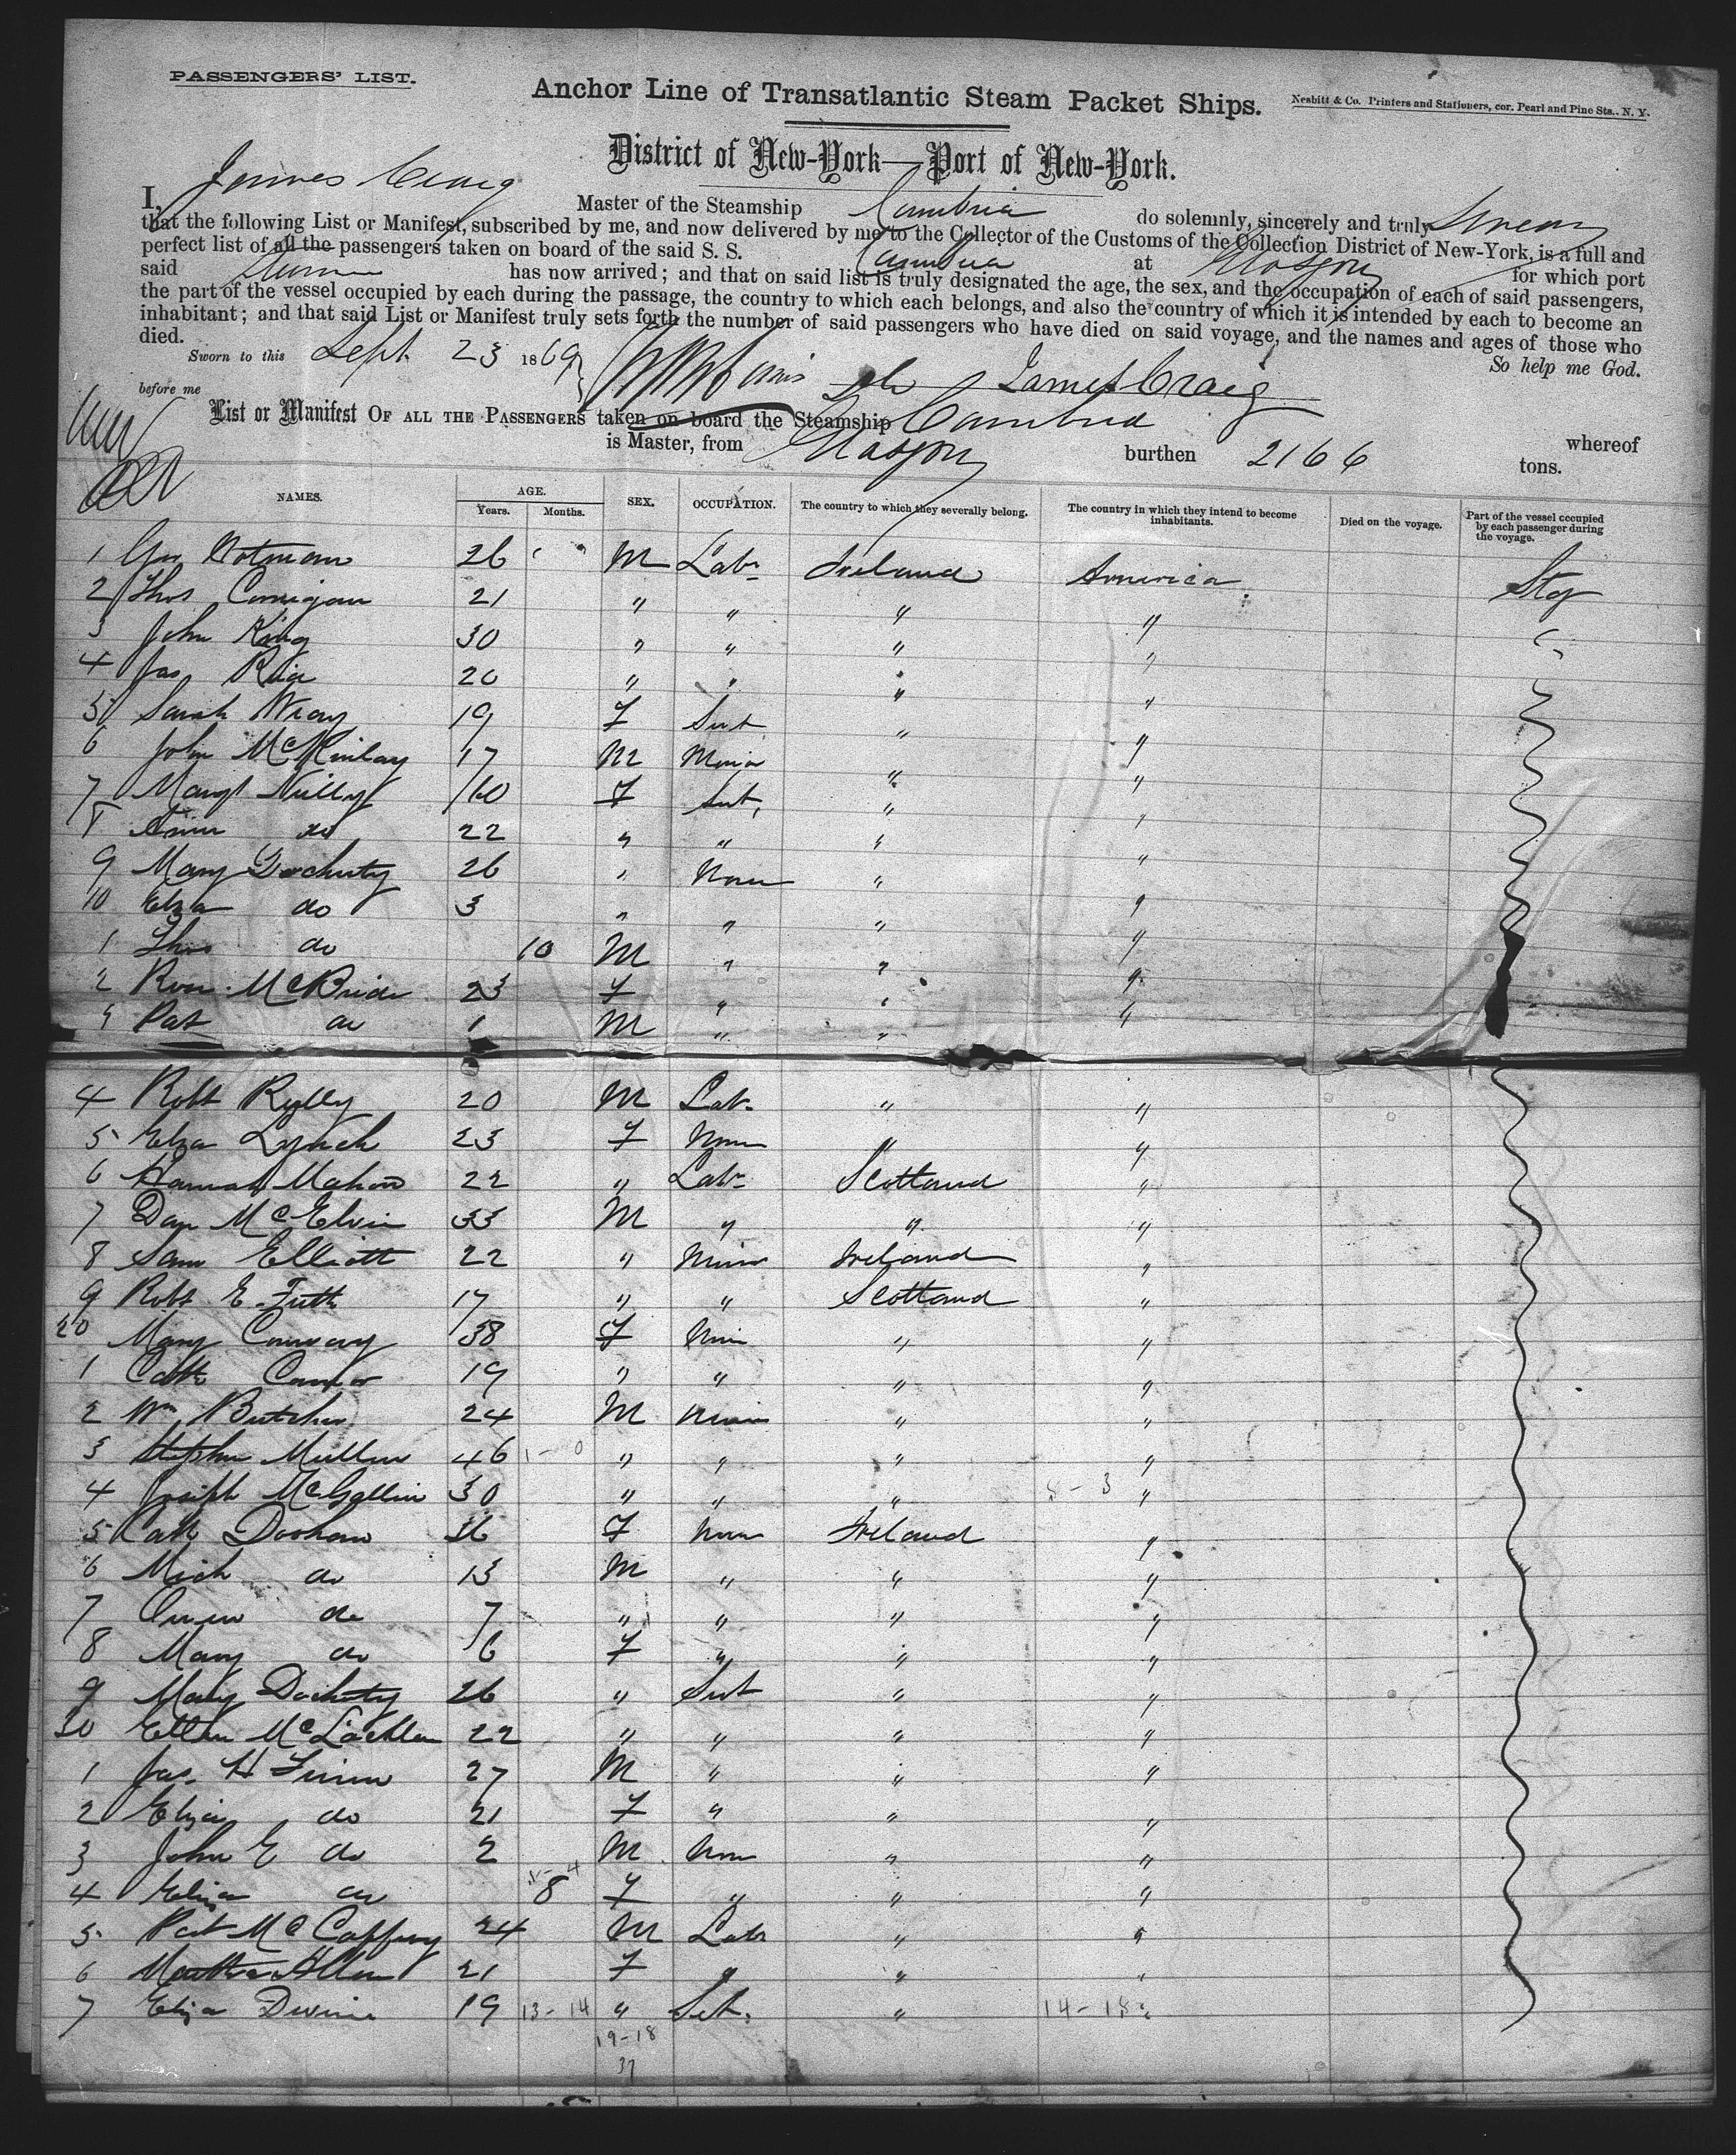 PASSENGERS' LIST.
Anchor Line of Transatlantic Steam Packet Ships.
Nesbitt & Co. Printers and Stationers, cor. Pearl and Pine Sts., N. Y.
District of New-York—Port of New-York.
I, James Craig Master of the Steamship Cambria do solemnly, sincerely and truly Swear
that the following List or Manifest, subscribed by me, and now delivered by me to the Collector of the Customs of the Collection District of New-York, is a full and
perfect list of all the passengers taken on board of the said S. S. Cambria at Glasgow for which port
said has now arrived; and that on said list is truly designated the age, the sex, and the occupation of each of said passengers,
the part of the vessel occupied by each during the passage, the country to which each belongs, and also the country of which it is intended by each to become an
inhabitant; and that said List or Manifest truly sets forth the number of said passengers who have died on said voyage, and the names and ages of those who
died. So help me God.
Sworn to this Sept 23 1869
before me James Craig
List or Manifest OF ALL THE PASSENGERS taken on board the Steamship Cambria whereof
is Master, from Glasgow burthen 2166 tons.
NAMES. AGE. Years. Months. SEX. OCCUPATION. The country to which they severally belong. The country in which they intend to become inhabitants. Died on the voyage. Part of the vessel occupied by each passenger during the voyage.
1 26 M Labr Ireland America Stg
2 Thos Corrigan 21 " " " "
3 John King 30 " " " "
4 Jas 20 " " " "
5 Sarah Wray 19 F " "
6 John McKinlay 17 M " "
7 Margt 60 F " "
8 do 22 " " " "
9 Mary Docherty 26 " None " "
10 Eliza do 3 " " " "
1 Thos do 10 M " " "
2 Rose McBride 23 F " " "
3 Pat do 1 M " "
4 Robt Rylly 20 M Labr " "
5 Eliza Lynch 23 F None " "
6 Hannah Mahon 22 " Labr Scotland "
7 Dan McElvin 33 M " " "
8 Sam Elliott 22 " Miner Ireland "
9 Robt E. 17 " " Scotland "
20 Mary Conway 38 F None " "
1 Cath Connor 19 " " " "
2 Wm Butcher 24 M Miner " "
3 Stephen Mullen 46 " " " "
4 Joseph 30 " " " "
5 Cath 36 F None Ireland "
6 Mich do 13 M " " "
7 Owen do 7 " " " "
8 Mary do 6 F " " "
9 Mary Docherty 26 " " "
30 Ellen McLachlan 22 " " " "
1 Jas. H 27 M " " "
2 Eliza do 21 F " " "
3 John E do 2 M None " "
4 Eliza do 8 F " " "
5 Pat McCaffery 24 M Labr " "
6 Martha Allen 21 F " " "
7 Eliza Devine 19 13-14 " " 14-18
19-18
37